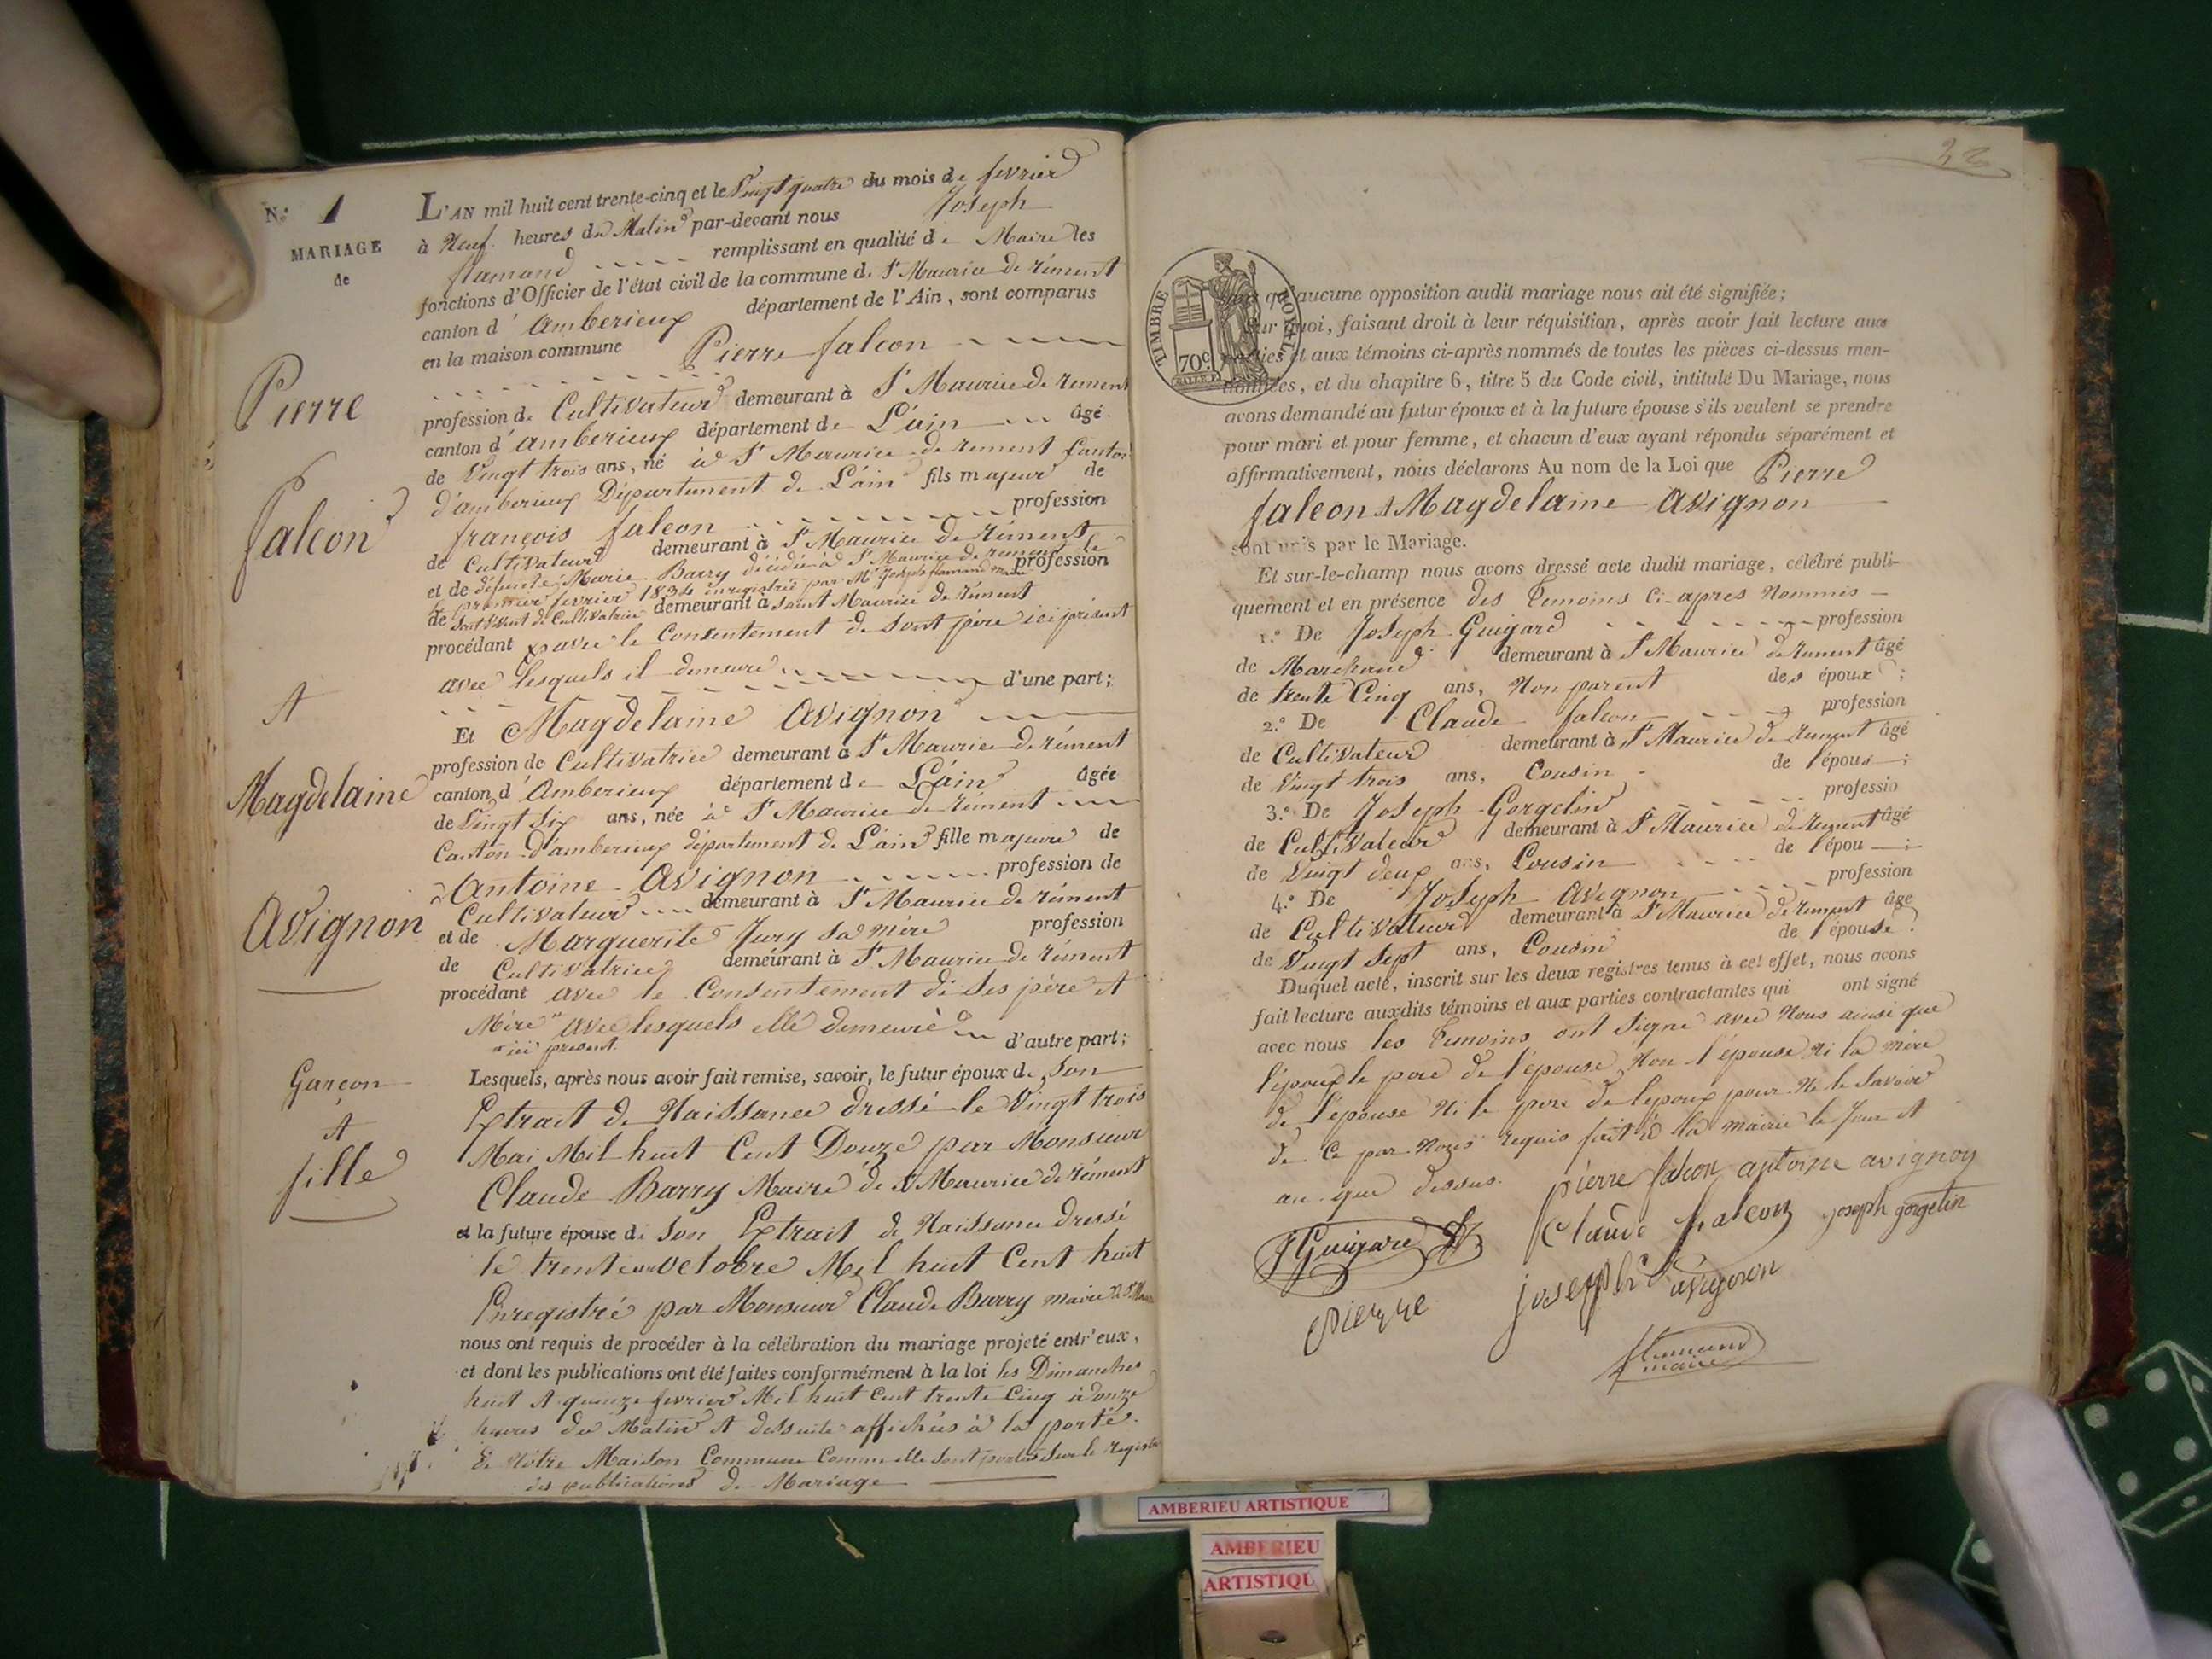 N.º 1
MARIAGE
de
Pierre
falcon
et
Magdelaine
Avignon
Garçon
et
fille
L'AN mil huit cent trente-cinq et le Vingt quatre du mois de fevrier
à Neuf heures du Matin par-devant nous Joseph
flamand remplissant en qualité de Maire les
fonctions d'Officier de l'état civil de la commune de St Maurice de rément
canton d'Amberieux département de l'Ain, sont comparus
en la maison commune Pierre falcon
profession de Cultivateur demeurant à St Maurice de rement
canton d'amberieux département de L'ain âgé
de Vingt trois ans, né à St Maurice de rement Canton
d'amberieux Département de L'ain fils majeur de
françois falcon profession
de Cultivateur demeurant à St Maurice de rément
et de défunte Marie Barry décédée à St Maurice de rement le profession
premier fevrier 1834 enregistrée par Mr Joseph flamand maire
de Cultivatrice demeurant à saint Maurice de rément
procédant avec le Consentement de sont père ici présent
avec lesquels il demeure d'une part;
Et Magdelaine Avignon
profession de Cultivatrice demeurant à St Maurice de rément
canton d'Amberieux département de L'ain âgée
de Vingt Six ans, née à St Maurice de rément
Canton d'amberieux département de L'ain fille majeure de
Antoine Avignon profession de
Cultivateur demeurant à St Maurice de rément
et de Marguerite Jury sa mère profession
de Cultivatrice demeurant à St Maurice de rément
procédant avec le Consentement de Ses père et
Mère avec lesquels elle demeure d'autre part;
ici present
Lesquels, après nous avoir fait remise, savoir, le futur époux de Son
Extrait de Naissance dressé le Vingt trois
Mai Mil huit Cent Douze par Monsieur
Claude Barry Maire de St Maurice de rément
et la future épouse de Son Extrait de Naissance dressé
le trente un octobre Mil huit Cent huit
Enregistré par Monsieur Claude Barry maire de St
nous ont requis de procéder à la célébration du mariage projeté entr'eux,
et dont les publications ont été faites conformément à la loi les Dimanches
huit et quinze fevrier Mil huit Cent trente Cinq à onze
heures du Matin et dessuite affichées à la porte
de Nôtre Maison Commune Comme elle sont portés sur le registre
des publications de Mariage
32
TIMBRE ROYAL
70c
qu'aucune opposition audit mariage nous ait été signifiée;
Sur quoi, faisant droit à leur réquisition, après avoir fait lecture aux
parties et aux témoins ci-après nommés de toutes les pièces ci-dessus men-
tionnées, et du chapitre 6, titre 5 du Code civil, intitulé Du Mariage, nous
avons demandé au futur époux et à la future épouse s'ils veulent se prendre
pour mari et pour femme, et chacun d'eux ayant répondu séparément et
affirmativement, nous déclarons Au nom de la Loi que Pierre
falcon et Magdelaine Avignon
sont unis par le Mariage.
Et sur-le-champ nous avons dressé acte dudit mariage, célébré publi-
quement et en présence des Temoins Ci-apres Nommés
1.º De Joseph Guigard profession
de Marchand demeurant à St Maurice de rement âgé
de trente Cinq ans, Non parent des époux;
2.º De Claude falcon profession
de Cultivateur demeurant à St Maurice de rement âgé
de Vingt trois ans, Cousin de l'épous;
3.º De Joseph Gorgelin professio
de Cultivateur demeurant à St Maurice de rement âgé
de Vingt deux ans, Cousin de l'épou;
4.º De Joseph Avignon profession
de Cultivateur demeurant à St Maurice de rément âgé
de Vingt Sept ans, Cousin de l'épouse.
Duquel acte, inscrit sur les deux registres tenus à cet effet, nous avons
fait lecture auxdits témoins et aux parties contractantes qui ont signé
avec nous les Temoins ont signé avec Nous ainsi que
l'époux le père de l'épouse Non l'épouse ni la mère
de l'épouse Ni le père de l'époux pour Ne le Savoir
de Ce par Nous requis fait à la mairie le Jour et
an que dessus.
pierre falcon antoine avignon
JGuigard Claude falcon joseph gorgelin
pierre joseph avignon
flamand
maire
AMBERIEU ARTISTIQUE
AMBERIEU
ARTISTIQU